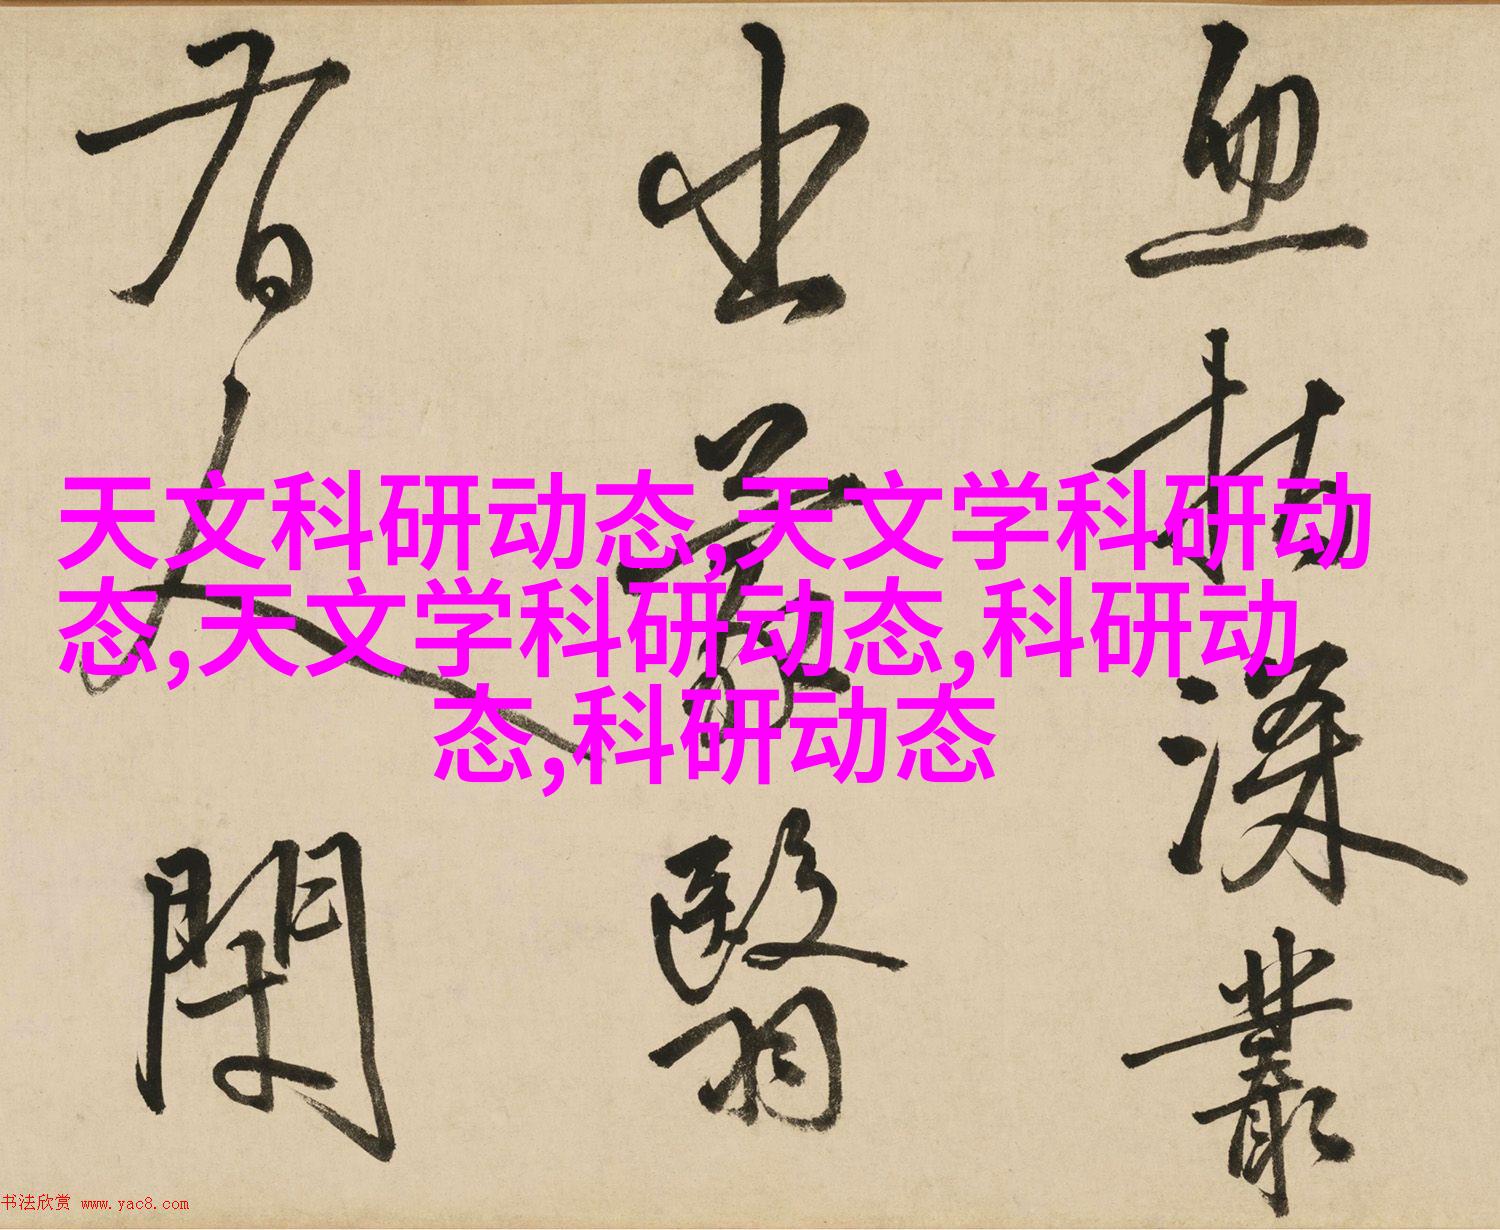 天文科研动态,天文学科研动
态,天文学科研动态,科研动
态,科研动态
深叢
翳
有人閑
书法欣赏 www.yac8.com